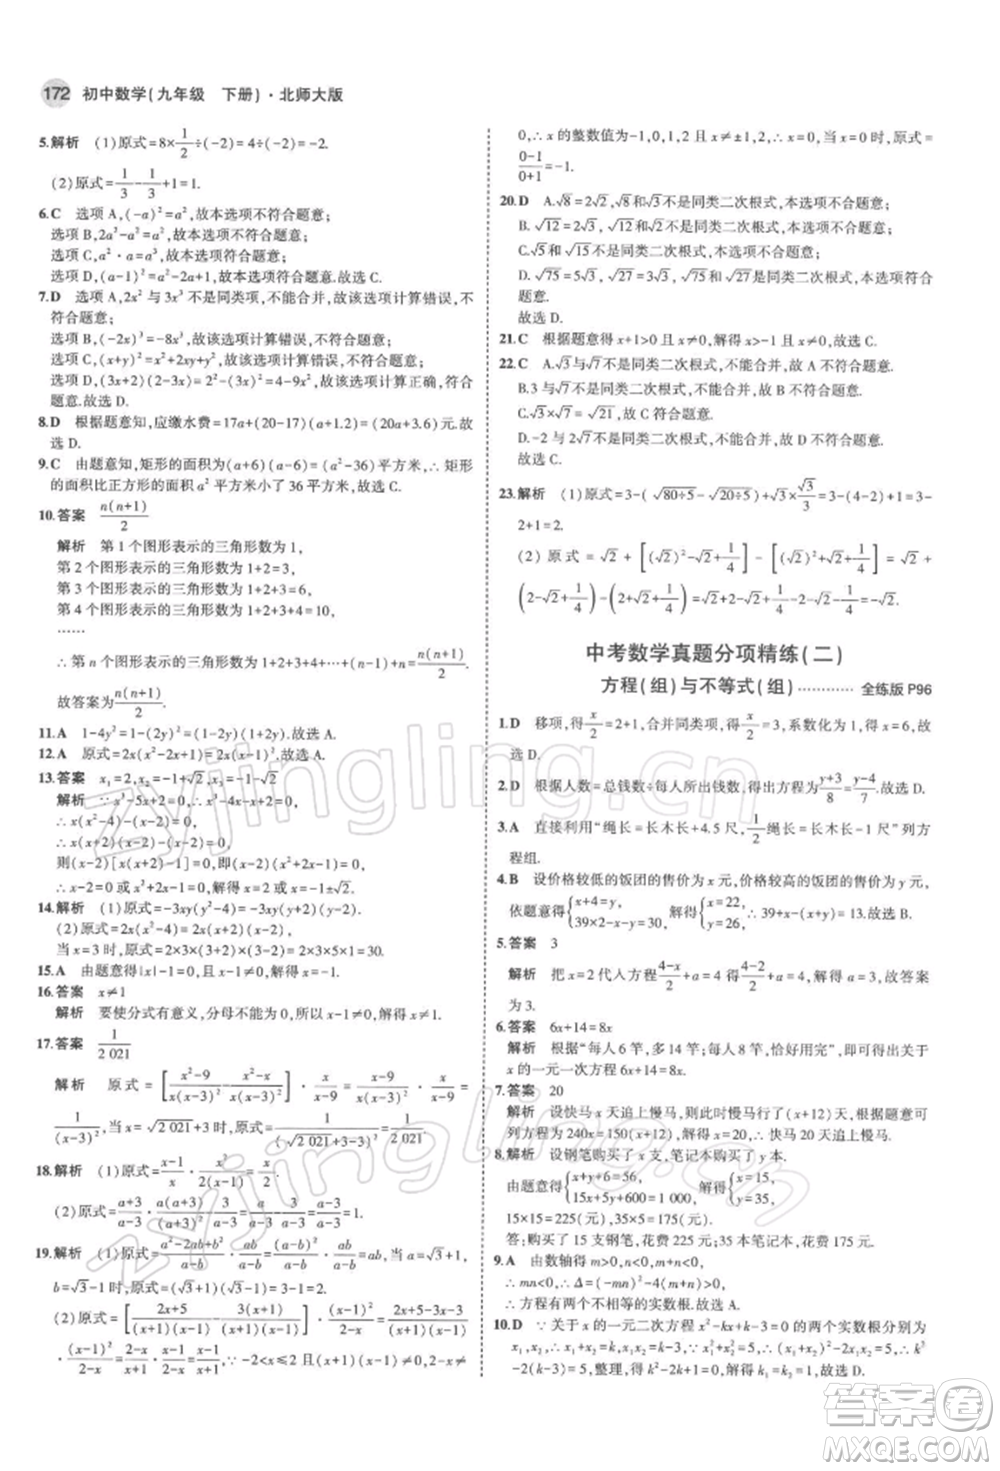 172 初中数学(九年级 下册)·北师大版
5.解析 (1)原式=8×1/2÷(-2)=4÷(-2)=-2.
(2)原式=1/3-1/3+1=1.
6.C 选项 A,(-a)²=a²,故本选项不符合题意;
选项 B,2a²-a²=a²,故本选项不符合题意;
选项 C,a²·a=a³,故本选项符合题意;
选项 D,(a-1)²=a²-2a+1,故本选项不符合题意.故选 C.
7.D 选项 A,2x²与 3x³ 不是同类项,不能合并,故该选项计算错误,不
符合题意;
选项 B,(-2x)³=-8x³,故该选项计算错误,不符合题意;
选项 C,(x+y)²=x²+2xy+y²,故该选项计算错误,不符合题意;
选项 D,(3x+2)(2-3x)=2²-(3x)²=4-9x²,故该选项计算正确,符合
题意.故选 D.
8.D 根据题意知,应缴水费=17a+(20-17)(a+1.2)=(20a+3.6)元.故
选 D.
9.C 由题意知,矩形的面积为(a+6)(a-6)=(a²-36)平方米,∴ 矩形
的面积比正方形的面积 a² 平方米小了 36 平方米,故选 C.
10.答案 n(n+1)/2
解析 第 1 个图形表示的三角形数为 1,
第 2 个图形表示的三角形数为 1+2=3,
第 3 个图形表示的三角形数为 1+2+3=6,
第 4 个图形表示的三角形数为 1+2+3+4=10,
……
∴ 第 n 个图形表示的三角形数为 1+2+3+4+…+(n-1)+n=n(n+1)/2.
故答案为n(n+1)/2.
11.A 1-4y²=1-(2y)²=(1-2y)(1+2y).故选 A.
12.A 原式=2x(x²-2x+1)=2x(x-1)².故选 A.
13.答案 x₁=2,x₂=-1+√2,x₃=-1-√2
解析 ∵ x³-5x+2=0,∴ x³-4x-x+2=0,
∴ x(x²-4)-(x-2)=0,
∴ x(x+2)(x-2)-(x-2)=0,
则(x-2)[x(x+2)-1]=0,即(x-2)(x²+2x-1)=0,
∴ x-2=0 或 x²+2x-1=0,解得 x=2 或 x=-1±√2.
14.解析 (1)原式=-3xy(y²-4)=-3xy(y+2)(y-2).
(2)原式=2x(x²-6x+9)=2x(x-3)²,
15.A 由题意得|x|-1=0,且 x-1≠0,解得 x=-1,故选 A.
16.答案 x≠1
解析 要使分式有意义,分母不能为 0,所以 x-1≠0,解得 x≠1.
17.答案 1/2 021
解析 原式=[(x²-9)/(x(x-3)²)-(x²-x)/(x(x-3)²)]·x/(x-9)=(x-9)/(x(x-3)²)·x/(x-9)=
1/(x-3)²,当 x=√2 021+3 时,原式=1/(√2 021+3-3)²=1/2 021.
0,∴ x 的整数值为-1,0,1,2,又∵ x≠±1,2,∴ x=0,当 x=0 时,原式=
(0-1)/(0+1)=-1.
20.D A.√8=2√2,√8与√3不是同类二次根式,本选项不合题意;
B.√12=2√3,√12与√2不是同类二次根式,本选项不合题意;
C.√5与√15不是同类二次根式,本选项不合题意;
D.√75=5√3,√27=3√3,√75与√27是同类二次根式,本选项符合
题意.
故选 D.
21.C 根据题意得 x+1>0 且 x≠0,解得 x>-1 且 x≠0.故选 C.
22.C A.√3与√7不是同类二次根式,不能合并,故 A 不符合题意.
B.3 与√7不是同类二次根式,不能合并,故 B 不符合题意.
C.√3×√7=√21,故 C 符合题意.
D.-2 与√7不是同类二次根式,不能合并,故 D 不符合题意.
故选 C.
23.解析 (1)原式=3-(√80÷5-√20÷5)+√3×√3/3=3-(4-2)+1=3-
2+1=2.
中考数学真题分项精练(二)
方程(组)与不等式(组)………… 全练版 P96
1.D 移项,得x/2=2+1,合并同类项,得x/2=3,系数化为 1,得 x=6,故
选 D.
2.D 根据人数=总钱数÷每人所出钱数,得(y+3)/8=(y-4)/7.故选 D.
3.A 直接利用“绳长=木长+4.5 尺,1/2绳长=木长-1 尺”列方
程组.
4.B 设价格较低的饭团的售价为 x 元,价格较高的饭团的售价为 y 元,
依题意得{x+4=y, 39×2-x=y,解得{x=37, y=41,∴ 39+x-(x+y)=-2,故选 B.
5.答案 3
解析 把 x=2 代入方程(4-x)/2+a=4,得(4-2)/2+a=4,解得 a=3,故答案
为 3.
6.答案 6x+14=8x
解析 根据“每人 6 竿,多 14 竿;每人 8 竿,恰好用完”可列出关于
x 的一元一次方程为 6x+14=8x.
7.答案 20
解析 设快马 x 天追上慢马,则此时慢马走了(x+12)天,根据题意可
列方程为 240x=150(x+12),解得 x=20.∴ 快马 20 天追上慢马.
8.解析 设钢笔购买了 x 支,笔记本购买了 y 本.
由题意得{x+y+6=56, 15x+5y+600=1 000,解得{x=15, y=35,
15×15=225(元),35×5=175(元).
答:购买了 15 支钢笔,花费 225 元,35 本笔记本,花费 175 元.
9.A 由数轴得 m>0,n<0,∴ mn<0,
∴ 方程有两个不相等的实数根.故选 A.
答案圈
MXQE.COM
zyjingling.cn
zyjingling.cn